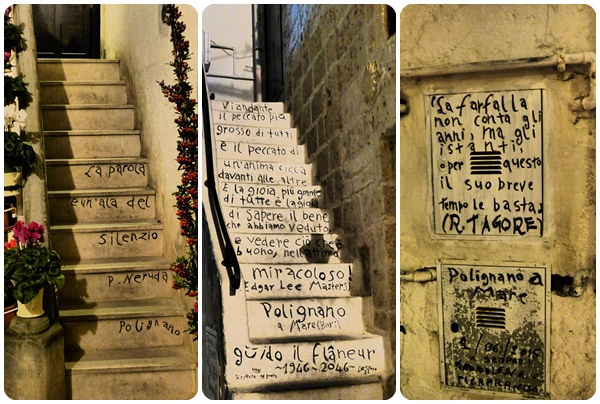 La parola
è un'ala del
silenzio
P. Neruda
Polignano
Viandante
il peccato più
grosso di tutti
è il peccato di
un'anima cieca
davanti alle altre
E la gioia più grande
di tutte è la gioia
di sapere il bene
che abbiamo veduto
e vedere ciò che è
buono, nell'attimo
miracoloso!
Edgar Lee Masters
Polignano
a Mare (Bari)
guido il flâneur
~1946~2046~
"La farfalla
non conta gli
anni, ma gli
istanti
per questo
il suo breve
tempo le basta"
(R. TAGORE)
Polignano a
Mare